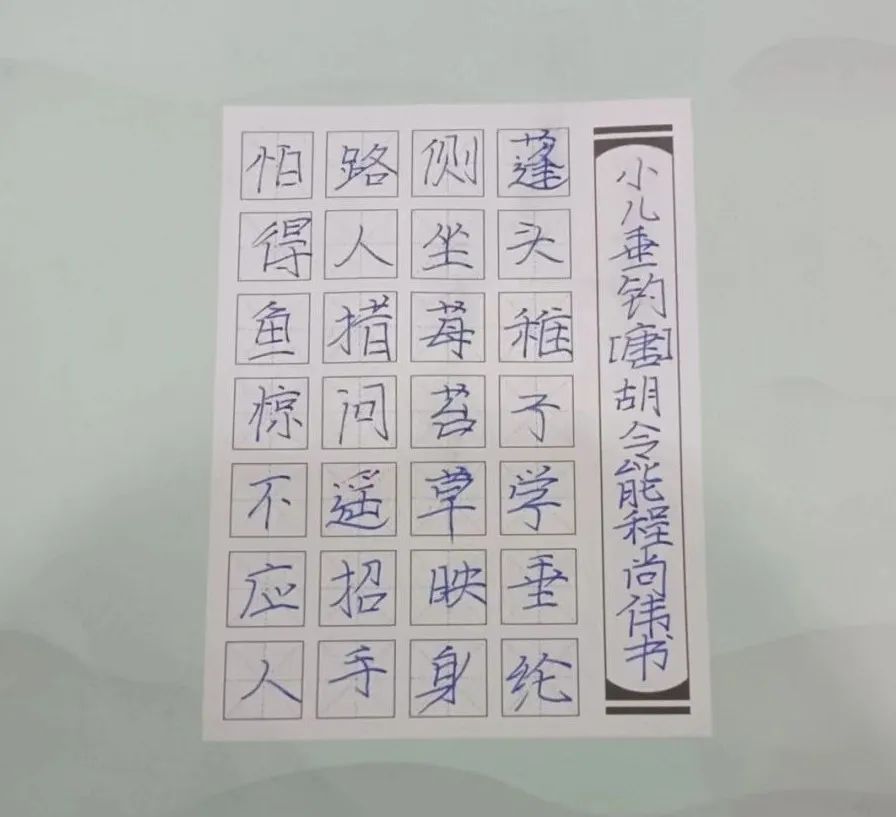 小儿垂钓[唐]胡令能程尚伟书
蓬头稚子学垂纶
侧坐莓苔草映身
路人措问遥招手
怕得鱼惊不应人